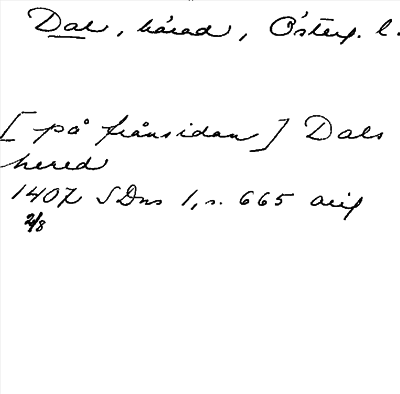 Dal, härad, Österg. l.
[på frånsidan] Dals
hered
1407 SDns 1, s. 665 orig
2/8